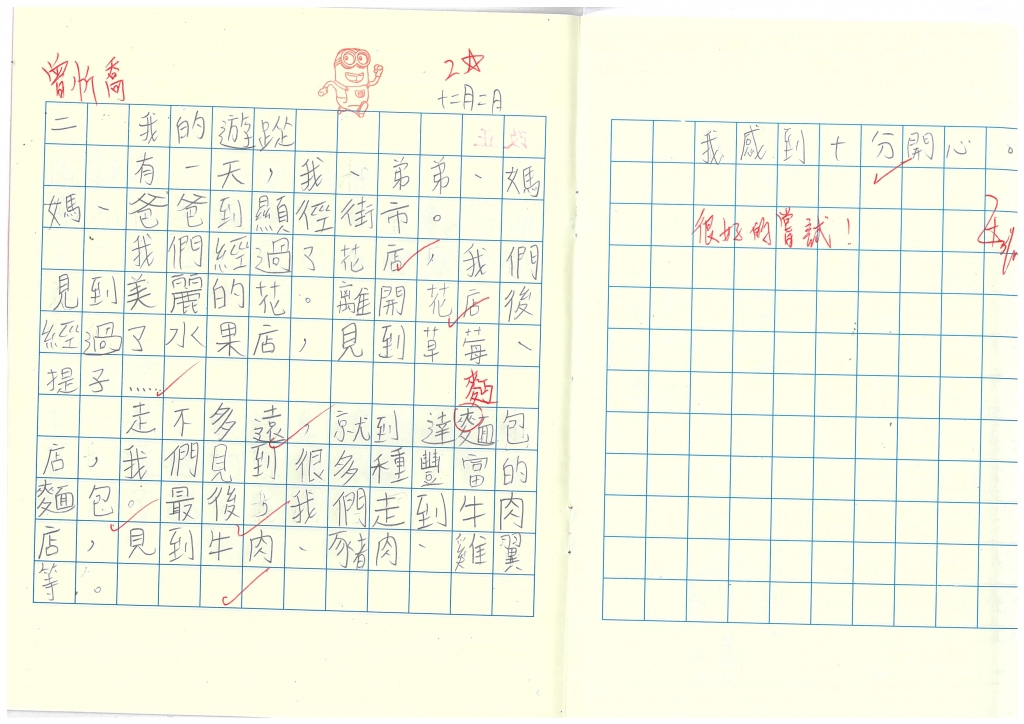 曾忻喬
2☆
十二月二日
二 我的遊蹤
改正
有一天，我、弟弟、媽
媽、爸爸到顯徑街市。
我們經過了花店，我們
見到美麗的花。離開花店後
經過了水果店，見到草莓、
提子……
麵
走不多遠，就到達麵包
店，我們見到很多種豐富的
麵包。最後，我們走到牛肉
店，見到牛肉、豬肉、雞翼
等。
我感到十分開心。
很好的嘗試！